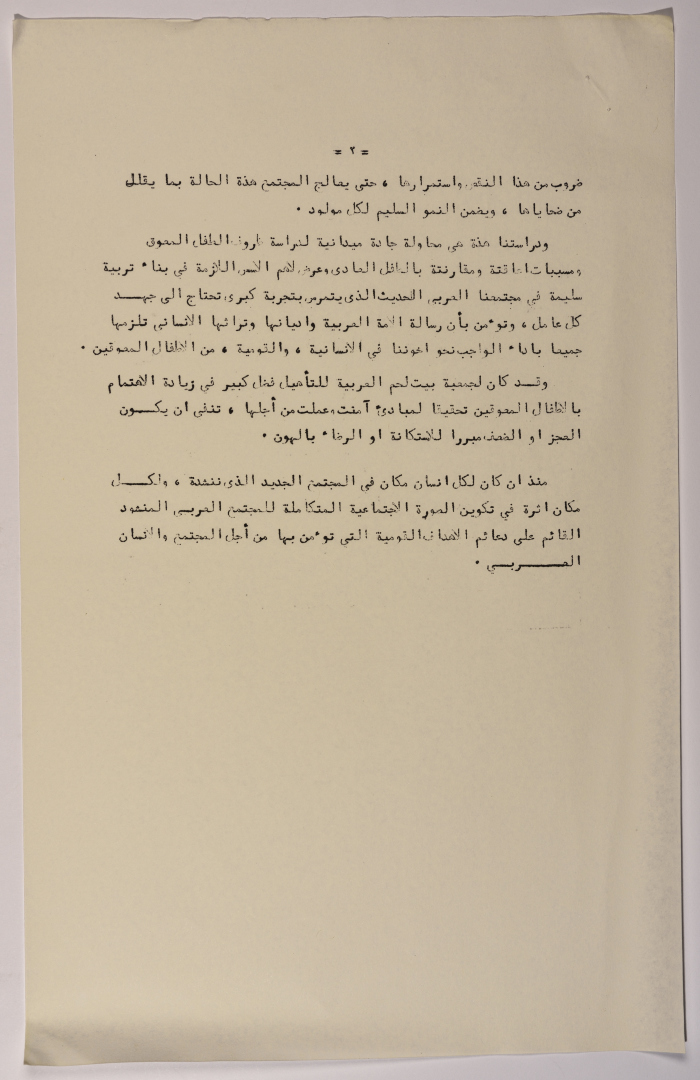 = ٢ =
ضروب من هذا النقص واستمرارها ، حتى يعالج المجتمع هذة الحالة بما يقلل
من ضحاياها ، ويضمن النمو السليم لكل مولود .
ودراستنا هذة هي محاولة جادة ميدانية لدراسة ظروف الطفل المعوق
ومسببات اعاقتة ومقارنتة بالطفل العادى وعرض لاهم الاسس اللازمة في بناء تربية
سليمة في مجتمعنا العربي الحديث الذى يتمرس بتجربة كبرى تحتاج الى جهــد
كل عامل ، وتوءمن بأن رسالة الامة العربية واديانها وتراثها الانساني تلزمها
جميعا باداء الواجب نحو اخوتنا في الانسانية ، والقومية ، من الاطفال المعوقين .
وقــد كان لجمعية بيت لحم العربية للتأهيل فضل كبير في زيادة الاهتمام
بالاطفال المعوقين تحقيقا لمبادىء آمنت وعملت من أجلها ، تنفى ان يكــون
العجز او الضعف مبررا للاستكانة او الرضاء بالهون .
منذ ان كان لكل انسان مكان في المجتمع الجديد الذى ننشدة ، ولكــل
مكان اثرة في تكوين الصورة الاجتماعية المتكاملة للمجتمع العربي المنشود
القائم على دعائم الاهداف القومية التي توءمن بها من أجل المجتمع والانسان
العــــربــي .